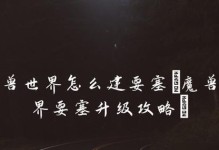 兽世界怎么建要塞 魔兽
界要塞升级攻略